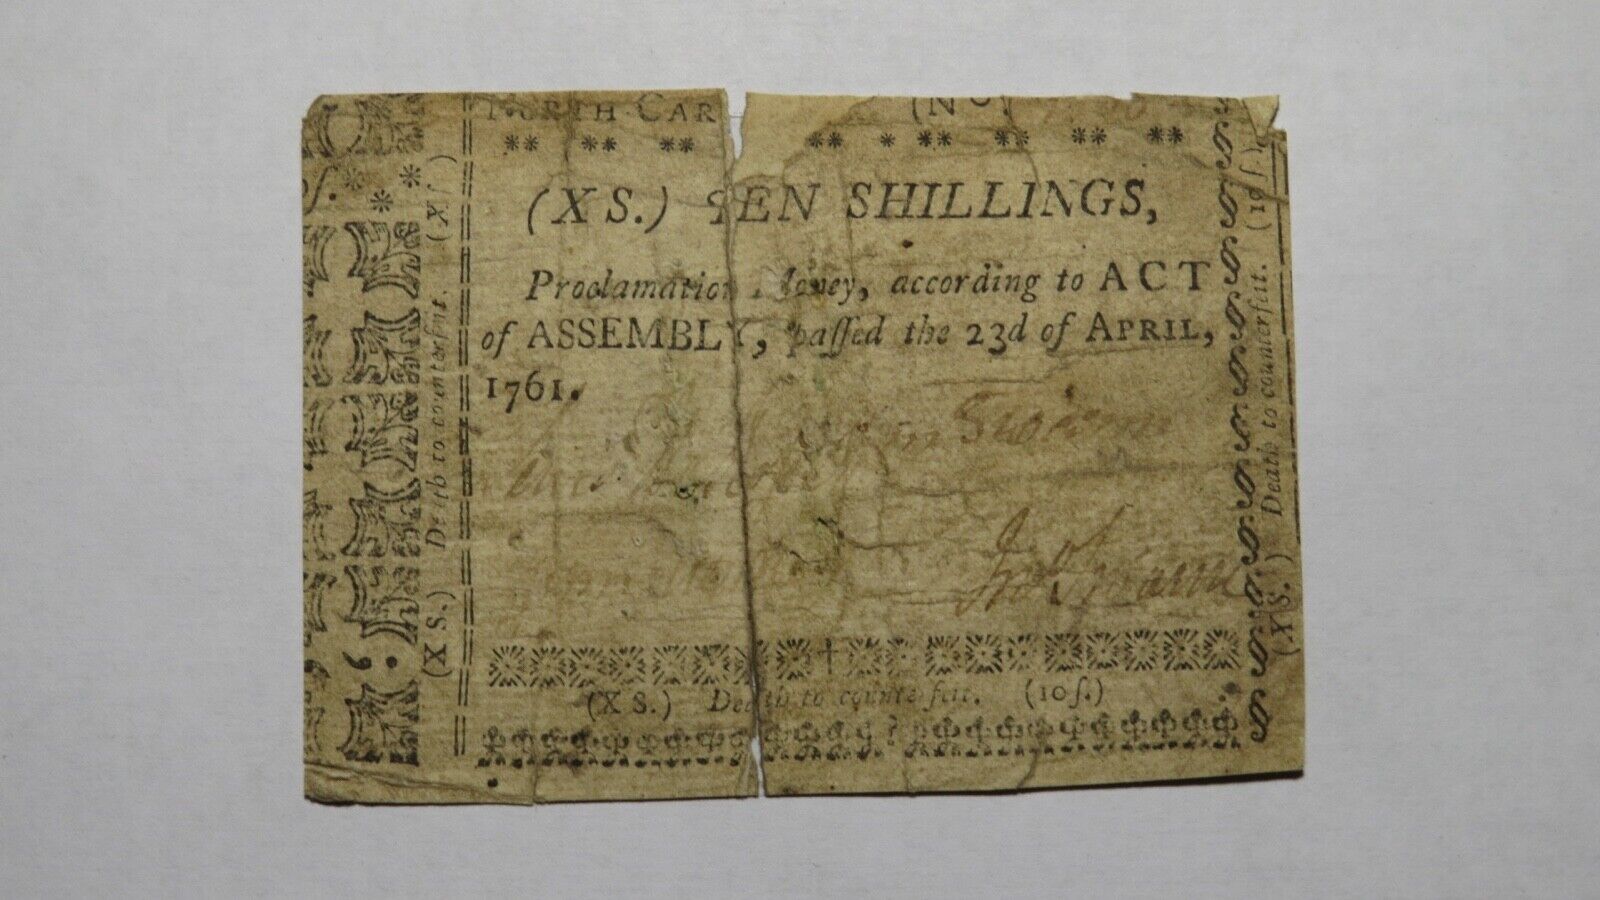 NORTH CAR (No.
(X S.) TEN SHILLINGS,
Proclamation Money, according to ACT
of ASSEMBLY, paſſed the 23d of APRIL,
1761.
in Swann
Jno Starkey
(X S.) Death to counterfeit. (10ſ.)
(X S.) Death to counterfeit. (Xſ)
(XS.) Death to counterfeit. (10ſ.)